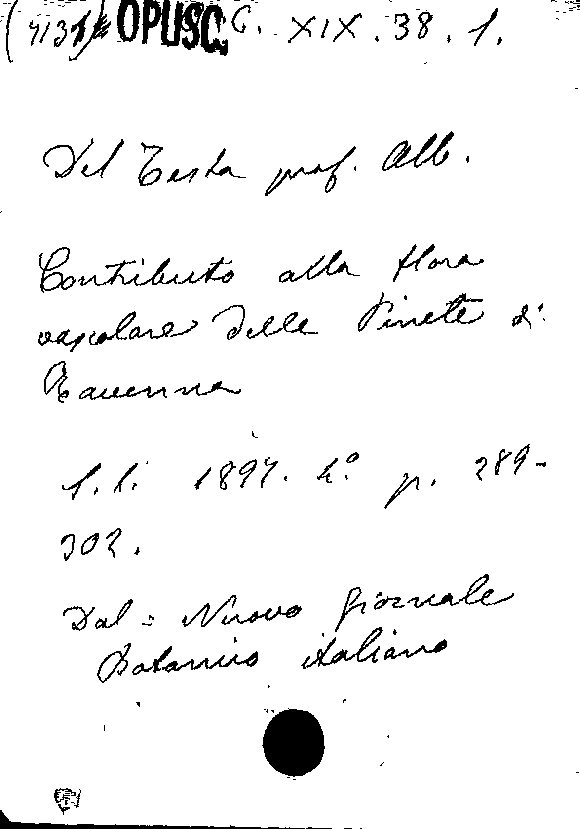 (4131) OPUSC. G. XIX. 38. 1.
Del Testa prof. Alb.
Contributo alla flora
vascolare delle Pinete di
Ravenna
S. l. 1897. 4º p. 289-
302.
Dal = Nuovo Giornale
Botanico italiano